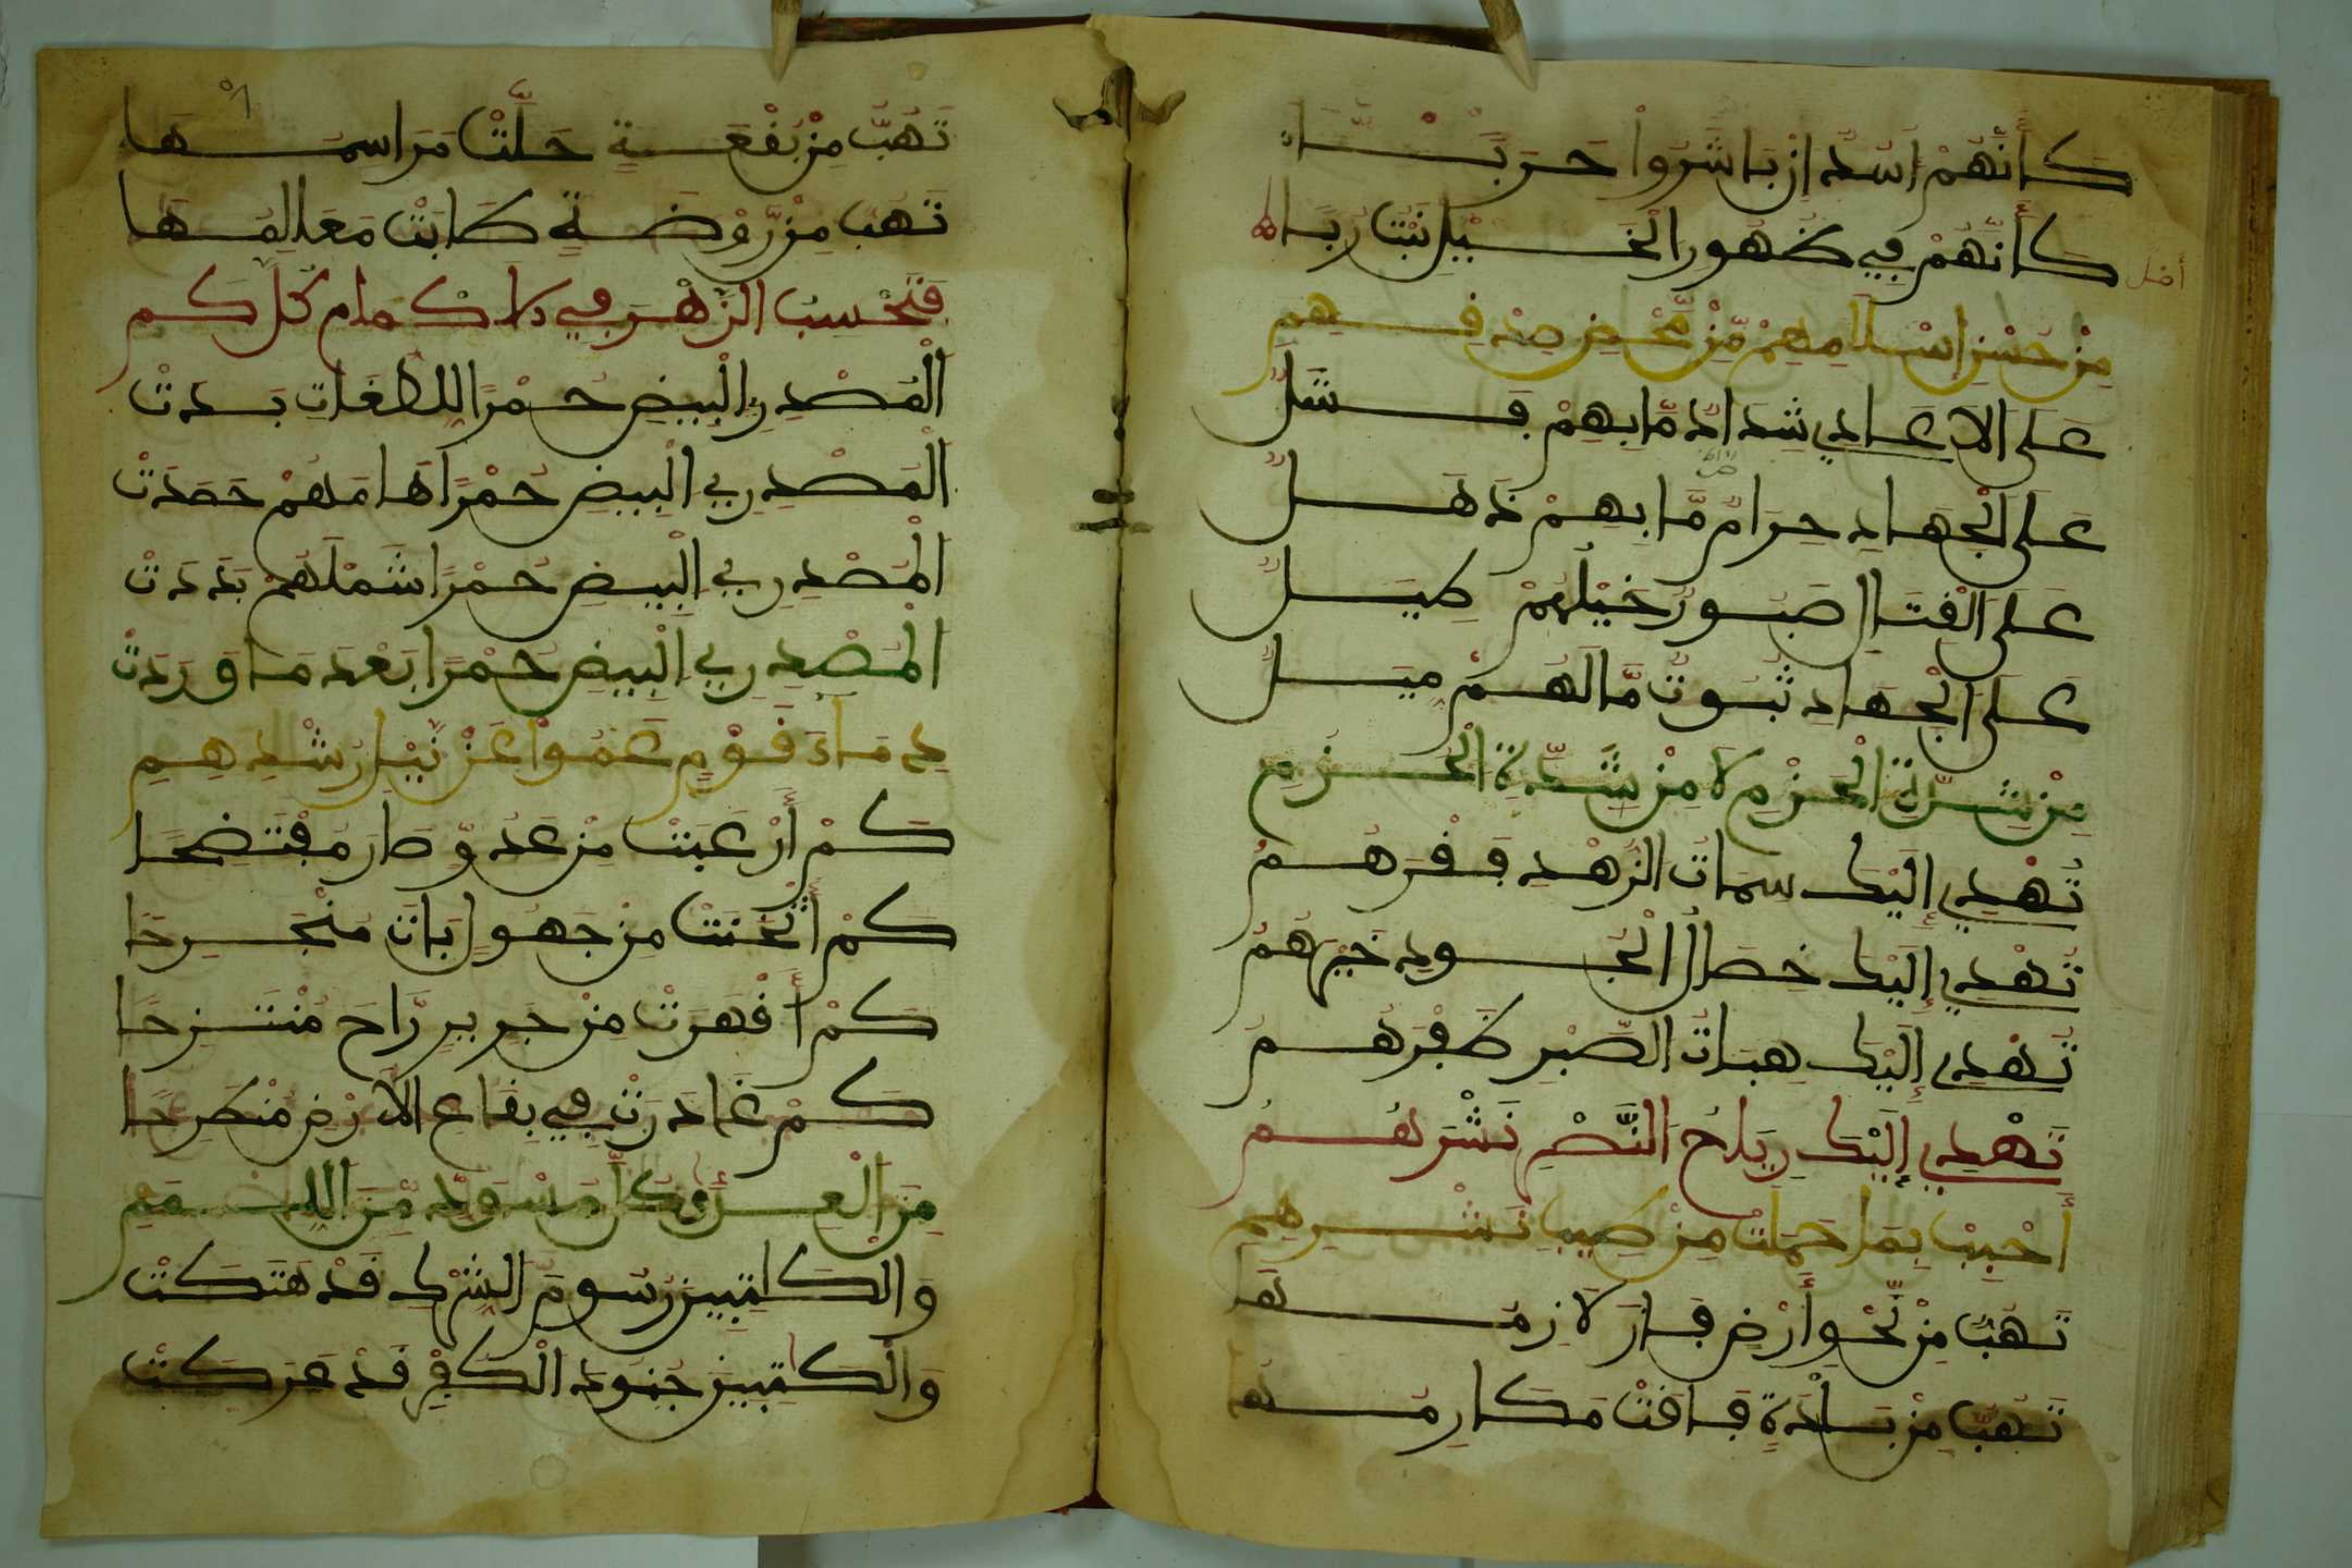 كَأَنَّهُمْ اسْدٌ ازْ بَاشَرُوا حَرَبًا
كَأَنَّهُمْ فِي ظُهُورِ الْخَيْلِ نَبْتُ رُبًا
مِنْ حُسْنِ إِسْلَامِهِمْ مِّنْ مَّحْضِ صِدْقِهِمِ
عَلَى الاعَادِي شِدَادٌ مَّا بِهِمْ فَشَلُ
عَلَى الْجِهَادِ حِرَامٌ مَّا بِهِمْ ذَهَلُ
عَلَى الْقِتَالِ صَبُورٌ خَيْلُهُمْ
عَلَى الْجِهَادِ ثُبُوتٌ مَّا لَهُمْ مَيَلُ
مِنْ شِدَّةِ الْحَزْمِ لَا مِنْ شِدَّةِ الْحُزُمِ
تُهْدِي إِلَيْكَ سِمَاتُ الزُّهْدِ فَقْرَهُمُ
تُهْدِي إِلَيْكَ خِصَالُ الْجُودِ خَيْرَهُمُ
تُهْدِي إِلَيْكَ هِبَاتُ الصَّبْرِ ظَفْرَهُمُ
تُهْدِي إِلَيْكَ رِيَاحُ النَّصْرِ نَشْرَهُمُ
أَحْبِبْ بِمَا حَمَلَتْ مِنْ طِيبِ نَشْرِهِمِ
تَهُبُّ مِنْ نَّحْوِ أَرْضٍ فَازَ لَازِمُهَا
تَهُبُّ مِنْ بَلْدَةٍ فَاقَتْ مَكَارِمُهَا
تَهُبُّ مِنْ بُقْعَةٍ حَلَّتْ مَرَاسِمُهَا
تَهُبُّ مِنْ رَّوْضَةٍ طَابَتْ مَعَالِمُهَا
فَتَحْسِبُ الزَّهْرَ فِي الاكْمَامِ كُلَّ كَمِ
الْمُصْدِرِي الْبِيضِ حُمْرًا بَدَتْ
الْمُصْدِرِي الْبِيضِ حُمْرًا هَامَهُمْ حَصَدَتْ
الْمُصْدِرِي الْبِيضِ حُمْرًا شَمْلَهُمْ بَدَدَتْ
الْمُصْدِرِي الْبِيضِ حُمْرًا بَعْدَ مَا وَرَدَتْ
دِمَاءَ قَوْمٍ عَمُوا عَنْ نَيْلِ رُشْدِهِمِ
كَمْ أَرْعَبَتْ مِنْ عَدُوٍّ صَارَ مُفْتَضِحَا
كَمْ أَثْخَنَتْ مِنْ جَهُولٍ بَاتَ مُنْجَرِحَا
كَمْ أَقْهَرَتْ مِنْ رَّاحَ مُنْتَزِحَا
كَمْ غَادَرَتْ فِي بِقَاعِ الاَرْضِ مُنْطَرِحَا
مِنَ الْعِدَى كُلَّ مُسْوَدٍّ مِّنَ اللِّمَمِ
وَالْكَاتِبِينَ رُسُومَ الشِّرْكِ قَدْ هَتَكَتْ
وَالْكَاتِبِينَ جُنُودَ الْكُفْرِ قَدْ عَرَكَتْ